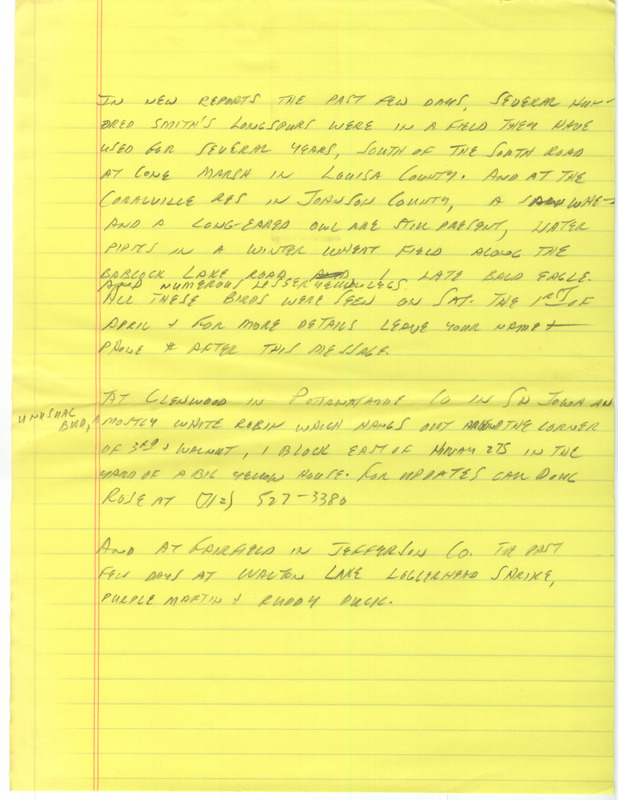 IN NEW REPORTS THE PAST FEW DAYS, SEVERAL HUN-
DRED SMITH'S LONGSPURS WERE IN A FIELD THEY HAVE
USED FOR SEVERAL YEARS, SOUTH OF THE SOUTH ROAD
AT CONE MARSH IN LOUISA COUNTY. AND AT THE
CORALVILLE RES IN JOHNSON COUNTY, A SAW WHET
AND A LONG-EARED OWL ARE STILL PRESENT, WATER
PIPITS IN A WINTER WHEAT FIELD ALONG THE
BABCOCK LAKE ROAD 1 LATE BALD EAGLE.
AND NUMEROUS LESSER YELLOWLEGS
ALL THESE BIRDS WERE SEEN ON SAT. THE 1RST OF
APRIL + FOR MORE DETAILS LEAVE YOUR NAME +
PHONE # AFTER THIS MESSAGE.
AT GLENWOOD IN POTTAWATTAMIE CO IN SW IOWA AN
UNUSUAL BIRD, A MOSTLY WHITE ROBIN WHICH HANGS OUT AROUND THE CORNER
OF 3RD + WALNUT, 1 BLOCK EAST OF HIWAY 275 IN THE
YARD OF A BIG YELLOW HOUSE. FOR UPDATES CALL DOUG
ROSE AT (712) 527-3380
AND AT FAIRFIELD IN JEFFERSON CO. THE PAST
FEW DAYS AT WALTON LAKE LOGGERHEAD SHRIKE,
PURPLE MARTIN + RUDDY DUCK.